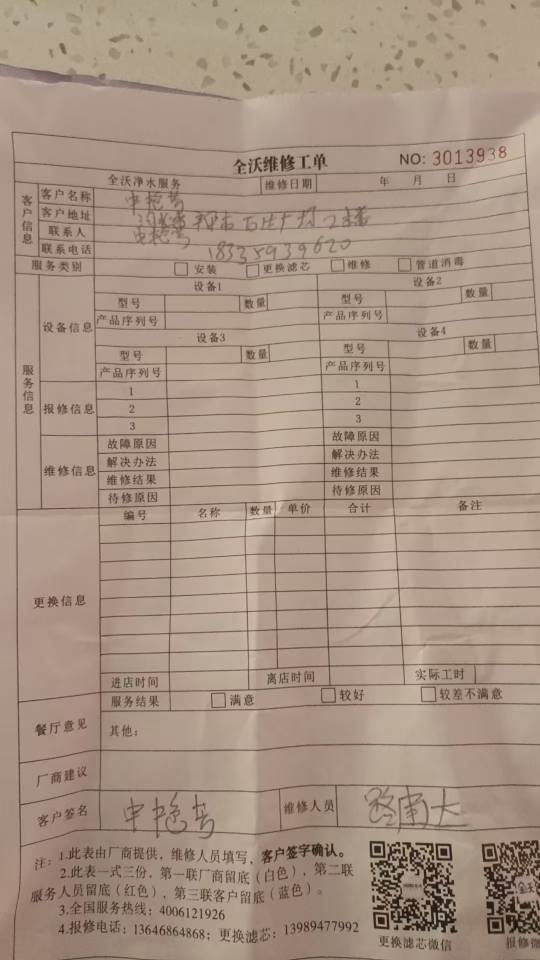 全沃维修工单 NO: 3013938
全沃净水服务 维修日期 年 月 日
客户信息
客户名称
客户地址 2楼
联系人
联系电话 18335939620
服务类别 安装 更换滤芯 维修 管道消毒
服务信息
设备信息
设备1 设备2
型号 数量 型号 数量
产品序列号 产品序列号
设备3 设备4
型号 数量 型号 数量
产品序列号 产品序列号
报修信息
1 1
2 2
3 3
维修信息
故障原因 故障原因
解决办法 解决办法
维修结果 维修结果
待修原因 待修原因
更换信息
编号 名称 数量 单价 合计 备注
进店时间 离店时间 实际工时
餐厅意见
服务结果 满意 较好 较差不满意
其他:
厂商建议
客户签名 维修人员
注: 1.此表由厂商提供，维修人员填写，客户签字确认。
2.此表一式三份，第一联厂商留底（白色），第二联
服务人员留底（红色），第三联客户留底（蓝色）。
3.全国服务热线: 4006121926
4.报修电话: 13646864868; 更换滤芯: 13989477992
更换滤芯微信
报修微